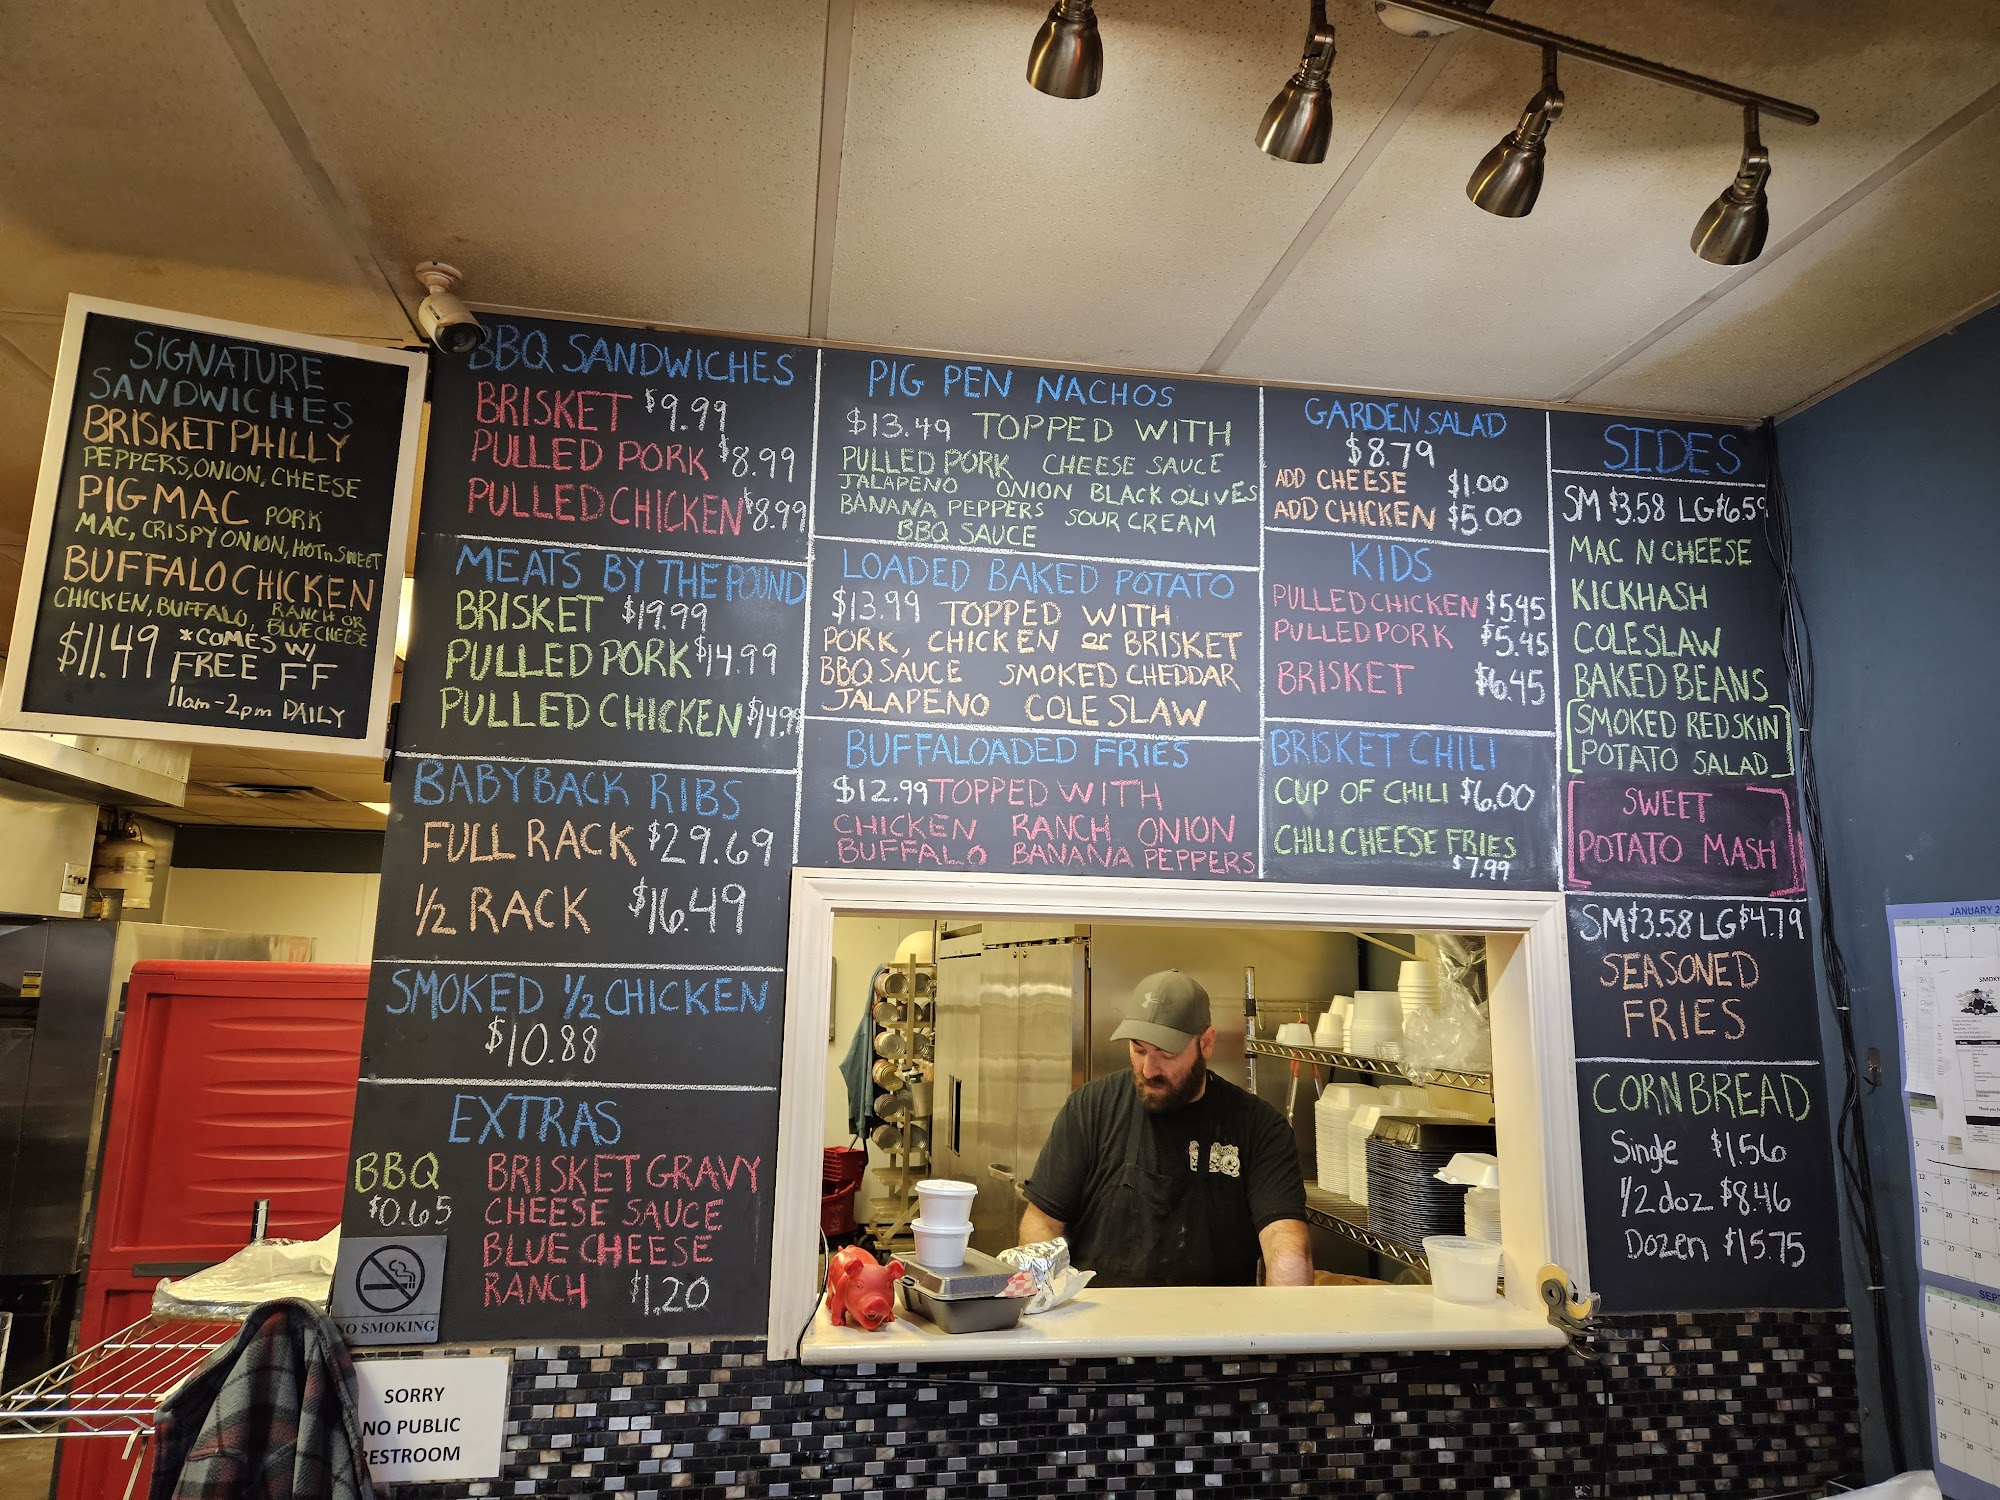 SIGNATURE
SANDWICHES
BRISKET PHILLY
PEPPERS, ONION, CHEESE
PIG MAC PORK
MAC, CRISPY ONION, HOT n SWEET
BUFFALO CHICKEN
CHICKEN, BUFFALO, RANCH OR
BLUE CHEESE
$11.49 *COMES W/
FREE FF
11am-2pm DAILY
BBQ SANDWICHES
BRISKET $9.99
PULLED PORK $8.99
PULLED CHICKEN $8.99
MEATS BY THE POUND
BRISKET $19.99
PULLED PORK $14.99
PULLED CHICKEN $14.99
BABYBACK RIBS
FULL RACK $29.69
1/2 RACK $16.49
SMOKED 1/2 CHICKEN
$10.88
EXTRAS
BBQ
$0.65
BRISKET GRAVY
CHEESE SAUCE
BLUE CHEESE
RANCH $1.20
NO SMOKING
SORRY
NO PUBLIC
RESTROOM
PIG PEN NACHOS
$13.49 TOPPED WITH
PULLED PORK CHEESE SAUCE
JALAPENO ONION BLACK OLIVES
BANANA PEPPERS SOUR CREAM
BBQ SAUCE
LOADED BAKED POTATO
$13.99 TOPPED WITH
PORK, CHICKEN OR BRISKET
BBQ SAUCE SMOKED CHEDDAR
JALAPENO COLE SLAW
BUFFALOADED FRIES
$12.99 TOPPED WITH
CHICKEN RANCH ONION
BUFFALO BANANA PEPPERS
GARDEN SALAD
$8.79
ADD CHEESE $1.00
ADD CHICKEN $5.00
KIDS
PULLED CHICKEN $5.45
PULLED PORK $5.45
BRISKET $6.45
BRISKET CHILI
CUP OF CHILI $6.00
CHILI CHEESE FRIES
$7.99
SIDES
SM $3.58 LG $6.59
MAC N CHEESE
KICKHASH
COLESLAW
BAKED BEANS
[SMOKED REDSKIN
POTATO SALAD]
[SWEET
POTATO MASH]
SM $3.58 LG $4.79
SEASONED
FRIES
CORNBREAD
Single $1.56
1/2 doz $8.46
Dozen $15.75
JANUARY 2
SMOKY
SEPT